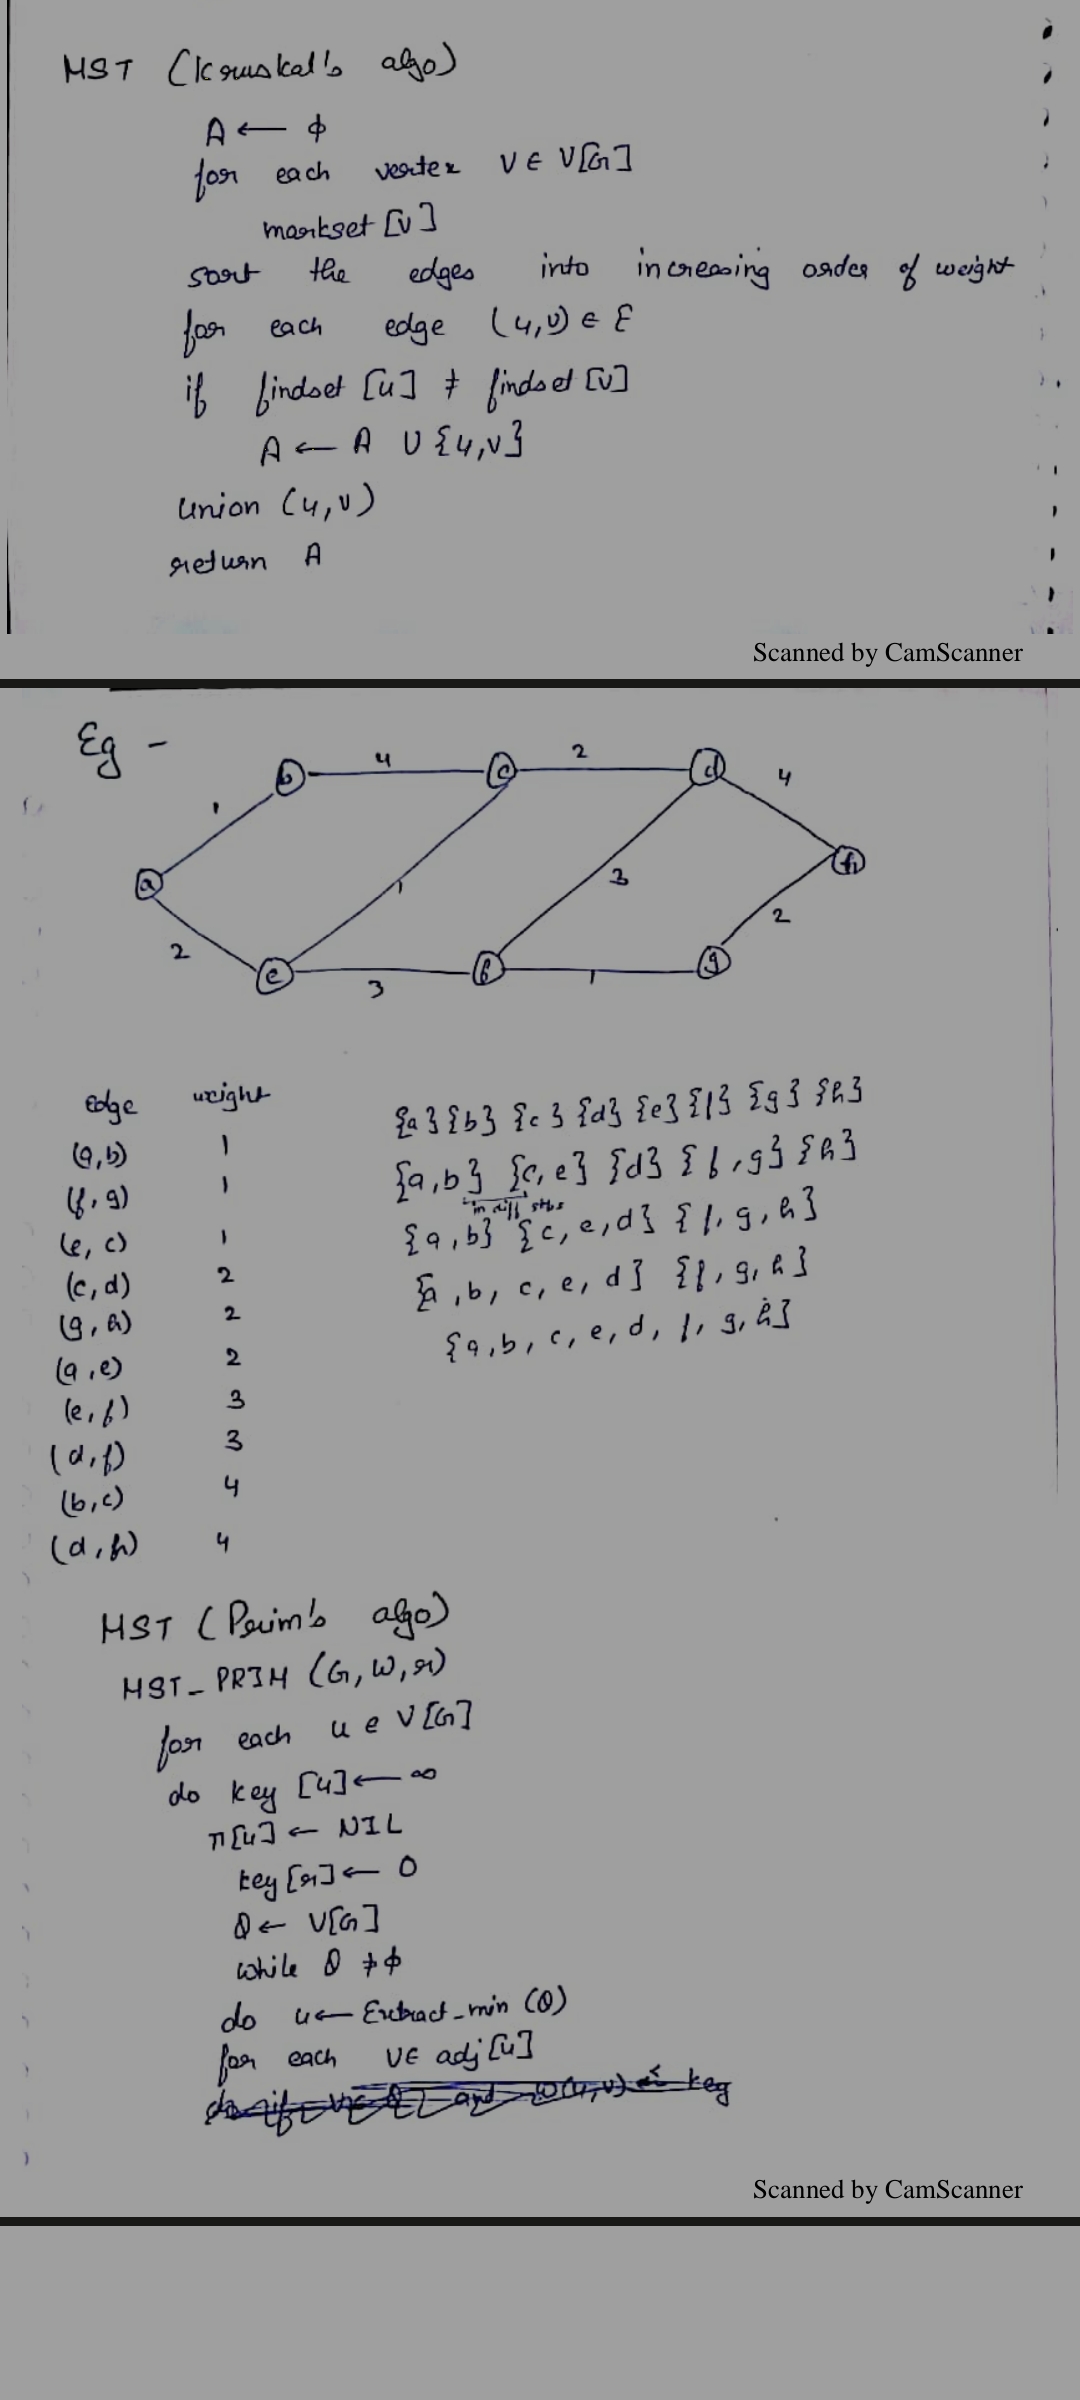 MST (Kruskal's algo)
A ← ϕ
for each vertex V ∈ V[G]
markset [v]
sort the edges into increasing order of weight
for each edge (u,v) ∈ E
if findset [u] ≠ findset [v]
A ← A ∪ {u,v}
union (u,v)
return A
Scanned by CamScanner
Eg -
b 4 c 2 d 4
1
a 1 3 h
2 2
e 3 f 1 g
edge weight
(a,b) 1
(f,g) 1
(e,c) 1
(c,d) 2
(g,h) 2
(a,e) 2
(e,f) 3
(d,f) 3
(b,c) 4
(d,h) 4
{a} {b} {c} {d} {e} {f} {g} {h}
{a,b} {c,e} {d} {f,g} {h}
in diff sets
{a,b} {c,e,d} {f,g,h}
{a,b,c,e,d} {f,g,h}
{a,b,c,e,d,f,g,h}
MST (Prim's algo)
MST_PRIM (G,W,r)
for each u e V[G]
do key [u] ← ∞
π[u] ← NIL
key [r] ← 0
Q ← V[G]
while Q ≠ ϕ
do u ← Extract_min (Q)
for each V∈ adj [u]
do if V∈ Q and w(u,v) < key
Scanned by CamScanner